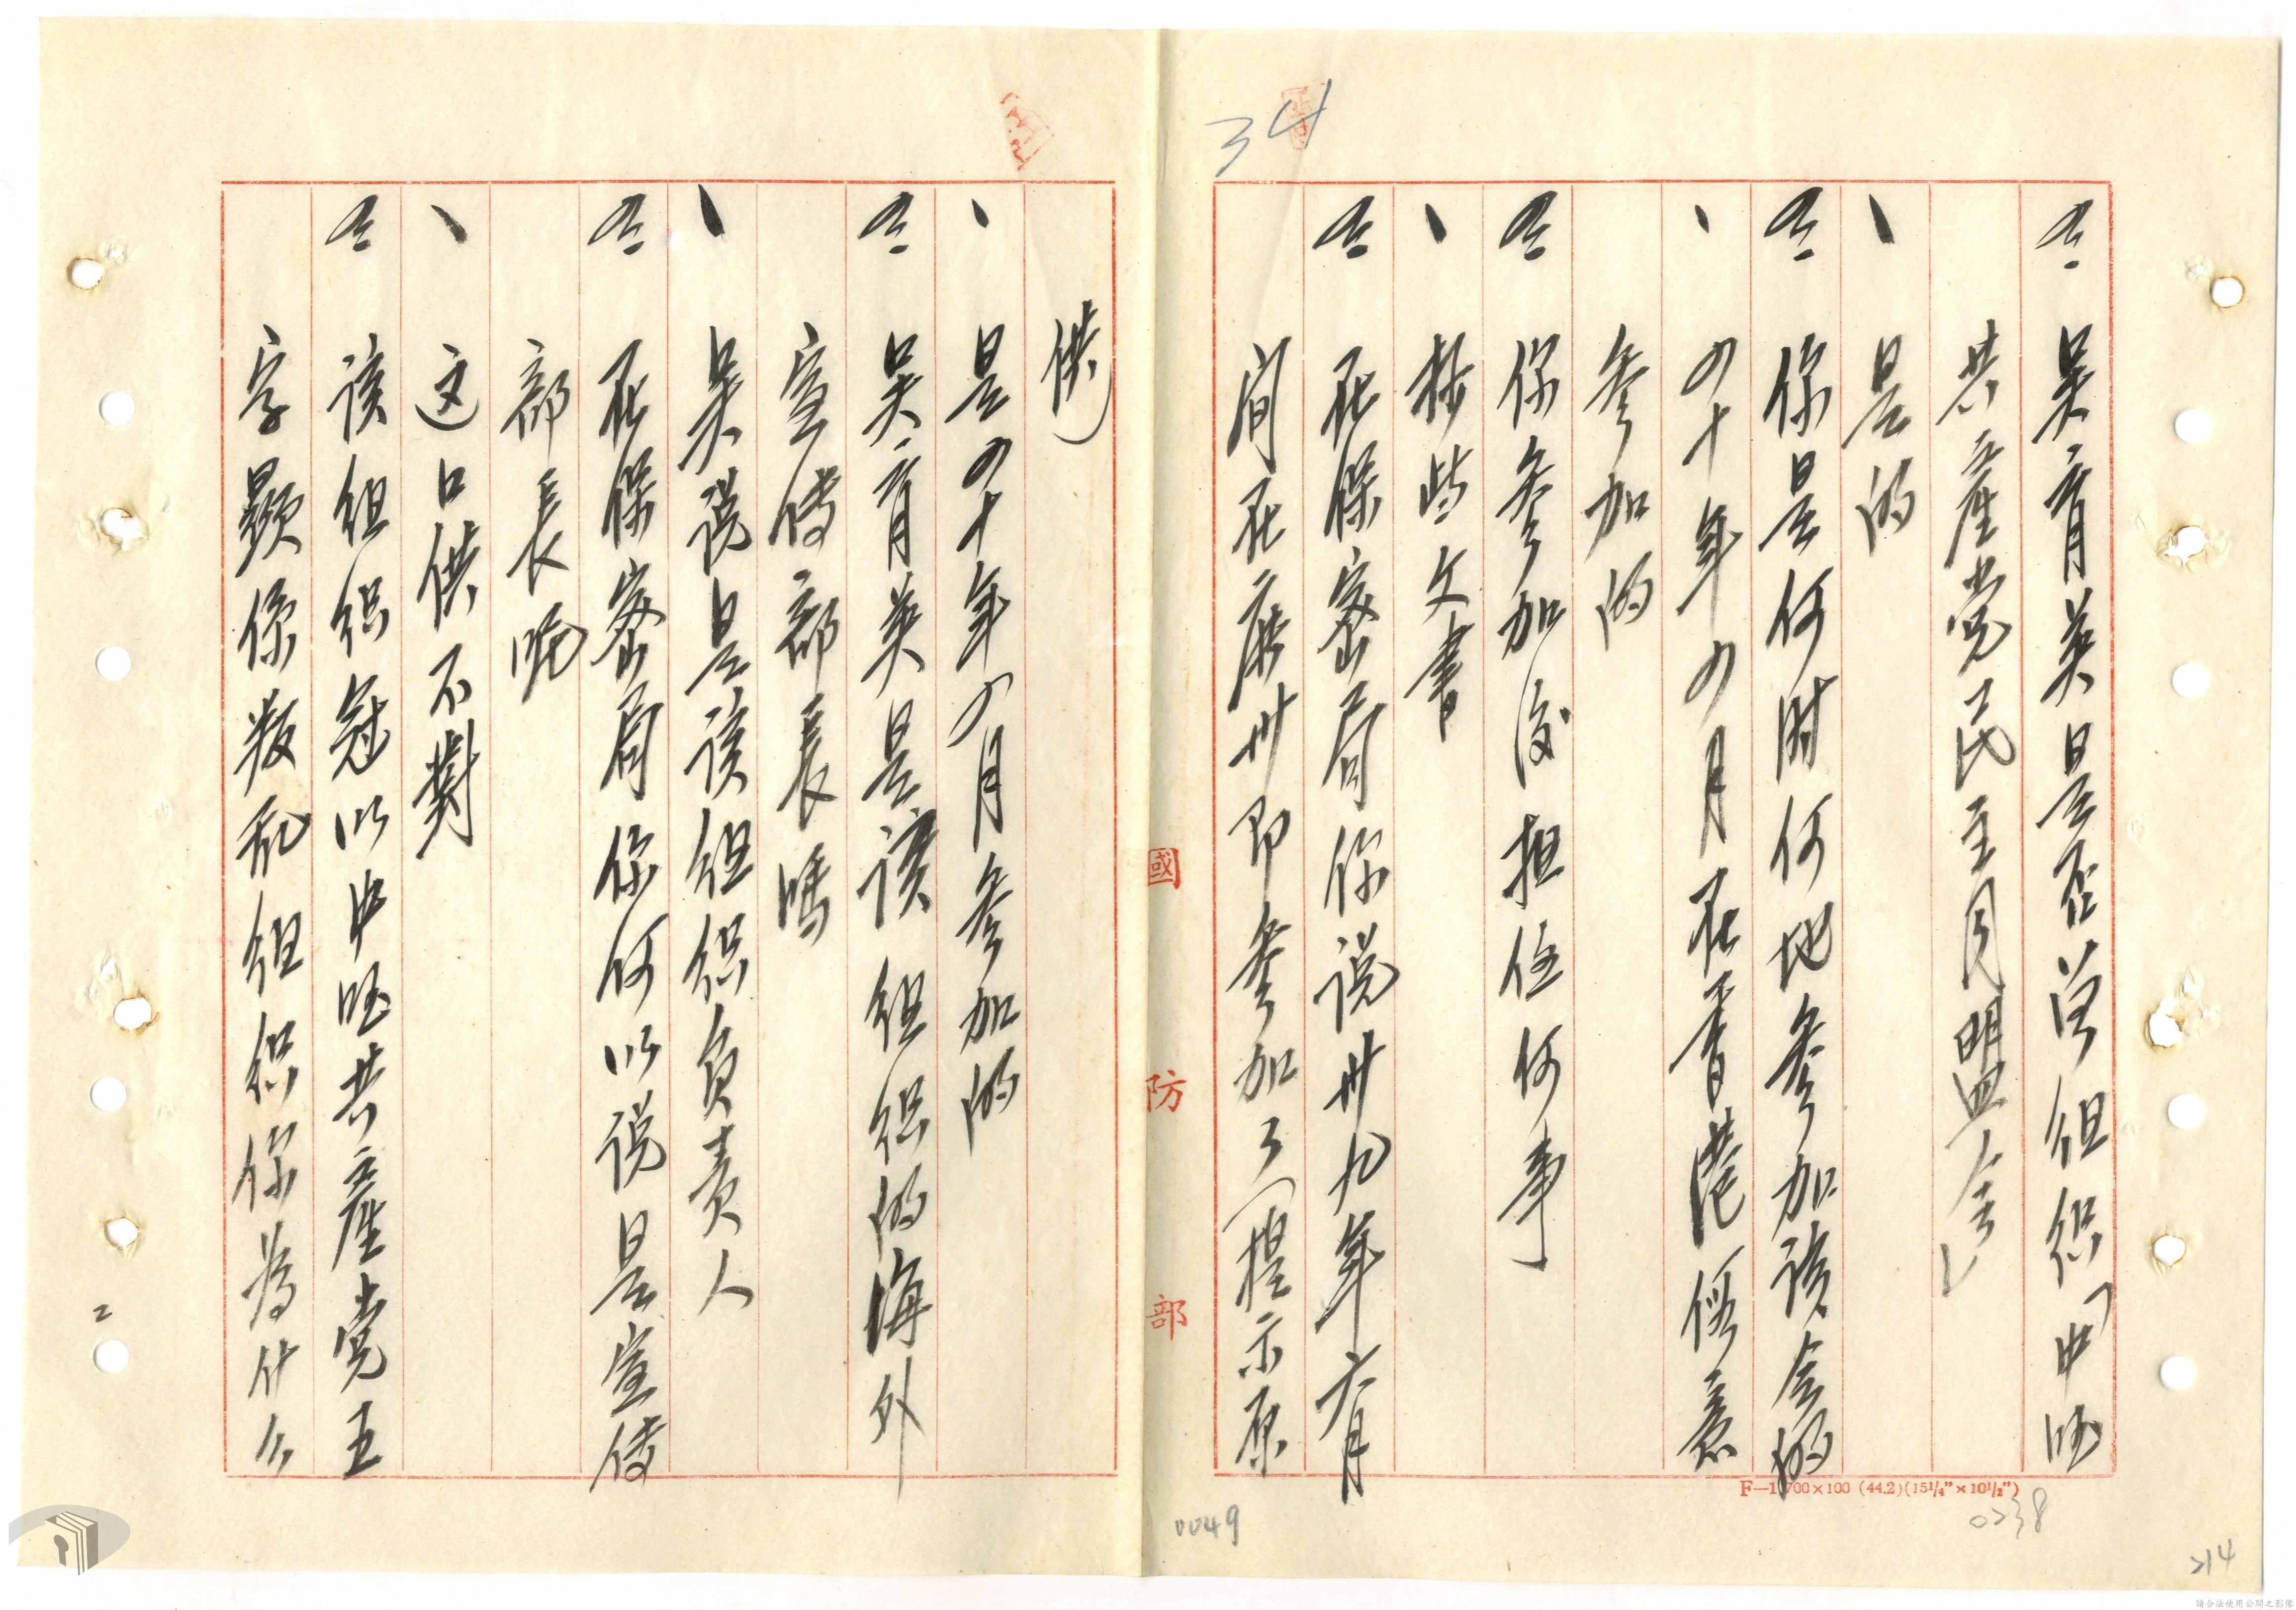 34
問 吳育英是否曾組织「中國
共產党民主同盟会」
答 是的
問 你是何时何地参加該会的
答 四十年四月在香港經意
参加的
問 你参加後担任何事
答 抄些文書
問 在保密局你說卅九年六月
間在廣州即参加了(提示原
供)
答 是四十年四月参加的
問 吳育英是該組织的海外
宣传部長嗎
答 吳說是該組织負責人
問 在保密局你何以說是宣传
部長呢
答 这口供不對
問 該組织冠以中国共產党五
字顯係叛乱組织你為什么
國防部
F—1 700×100 (44.2)(15¼"×10½")
0049
0238
214
2
請合法使用公開之影像